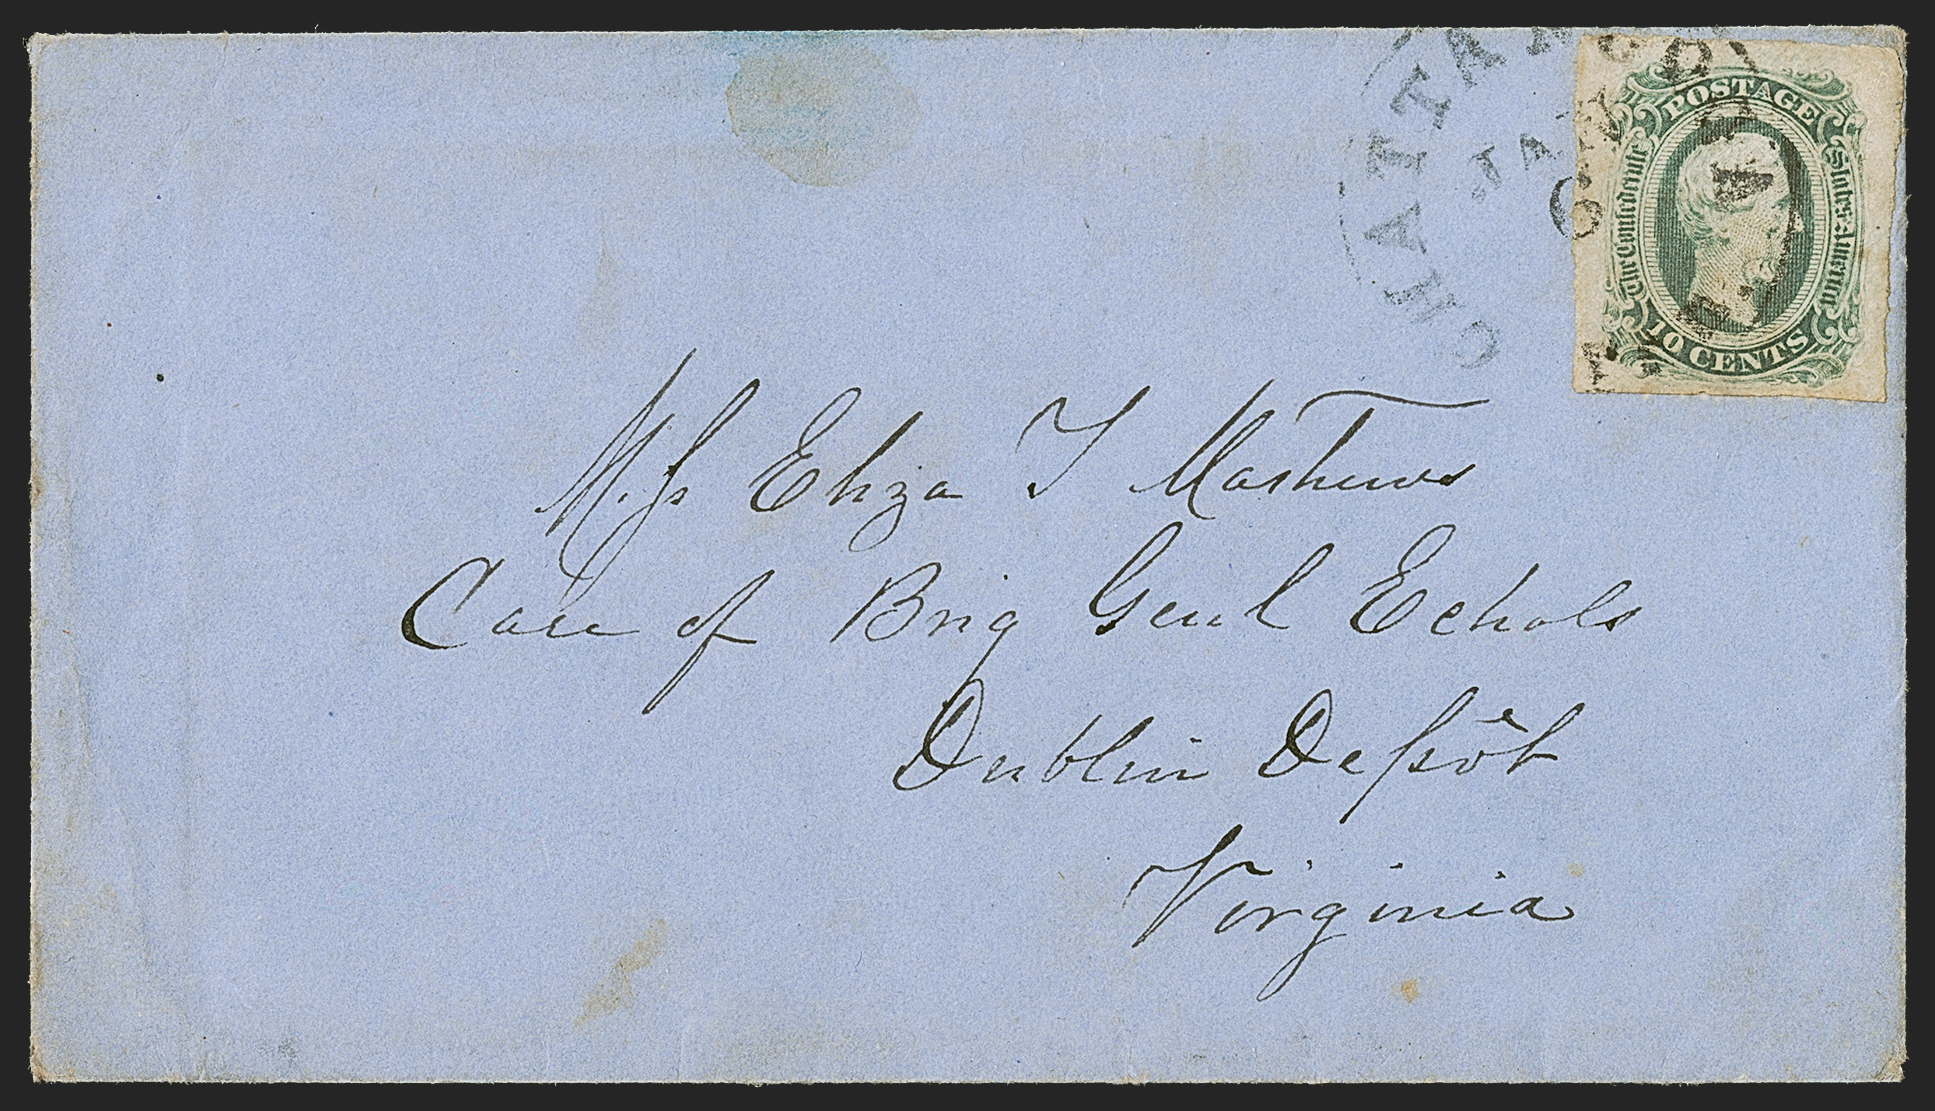 CHATTANOOGA
JAN
POSTAGE
The Confederate States America
10 CENTS
Miss Eliza T Mathews
Care of Brig Genl Echols
Dublin Depôt
Virginia